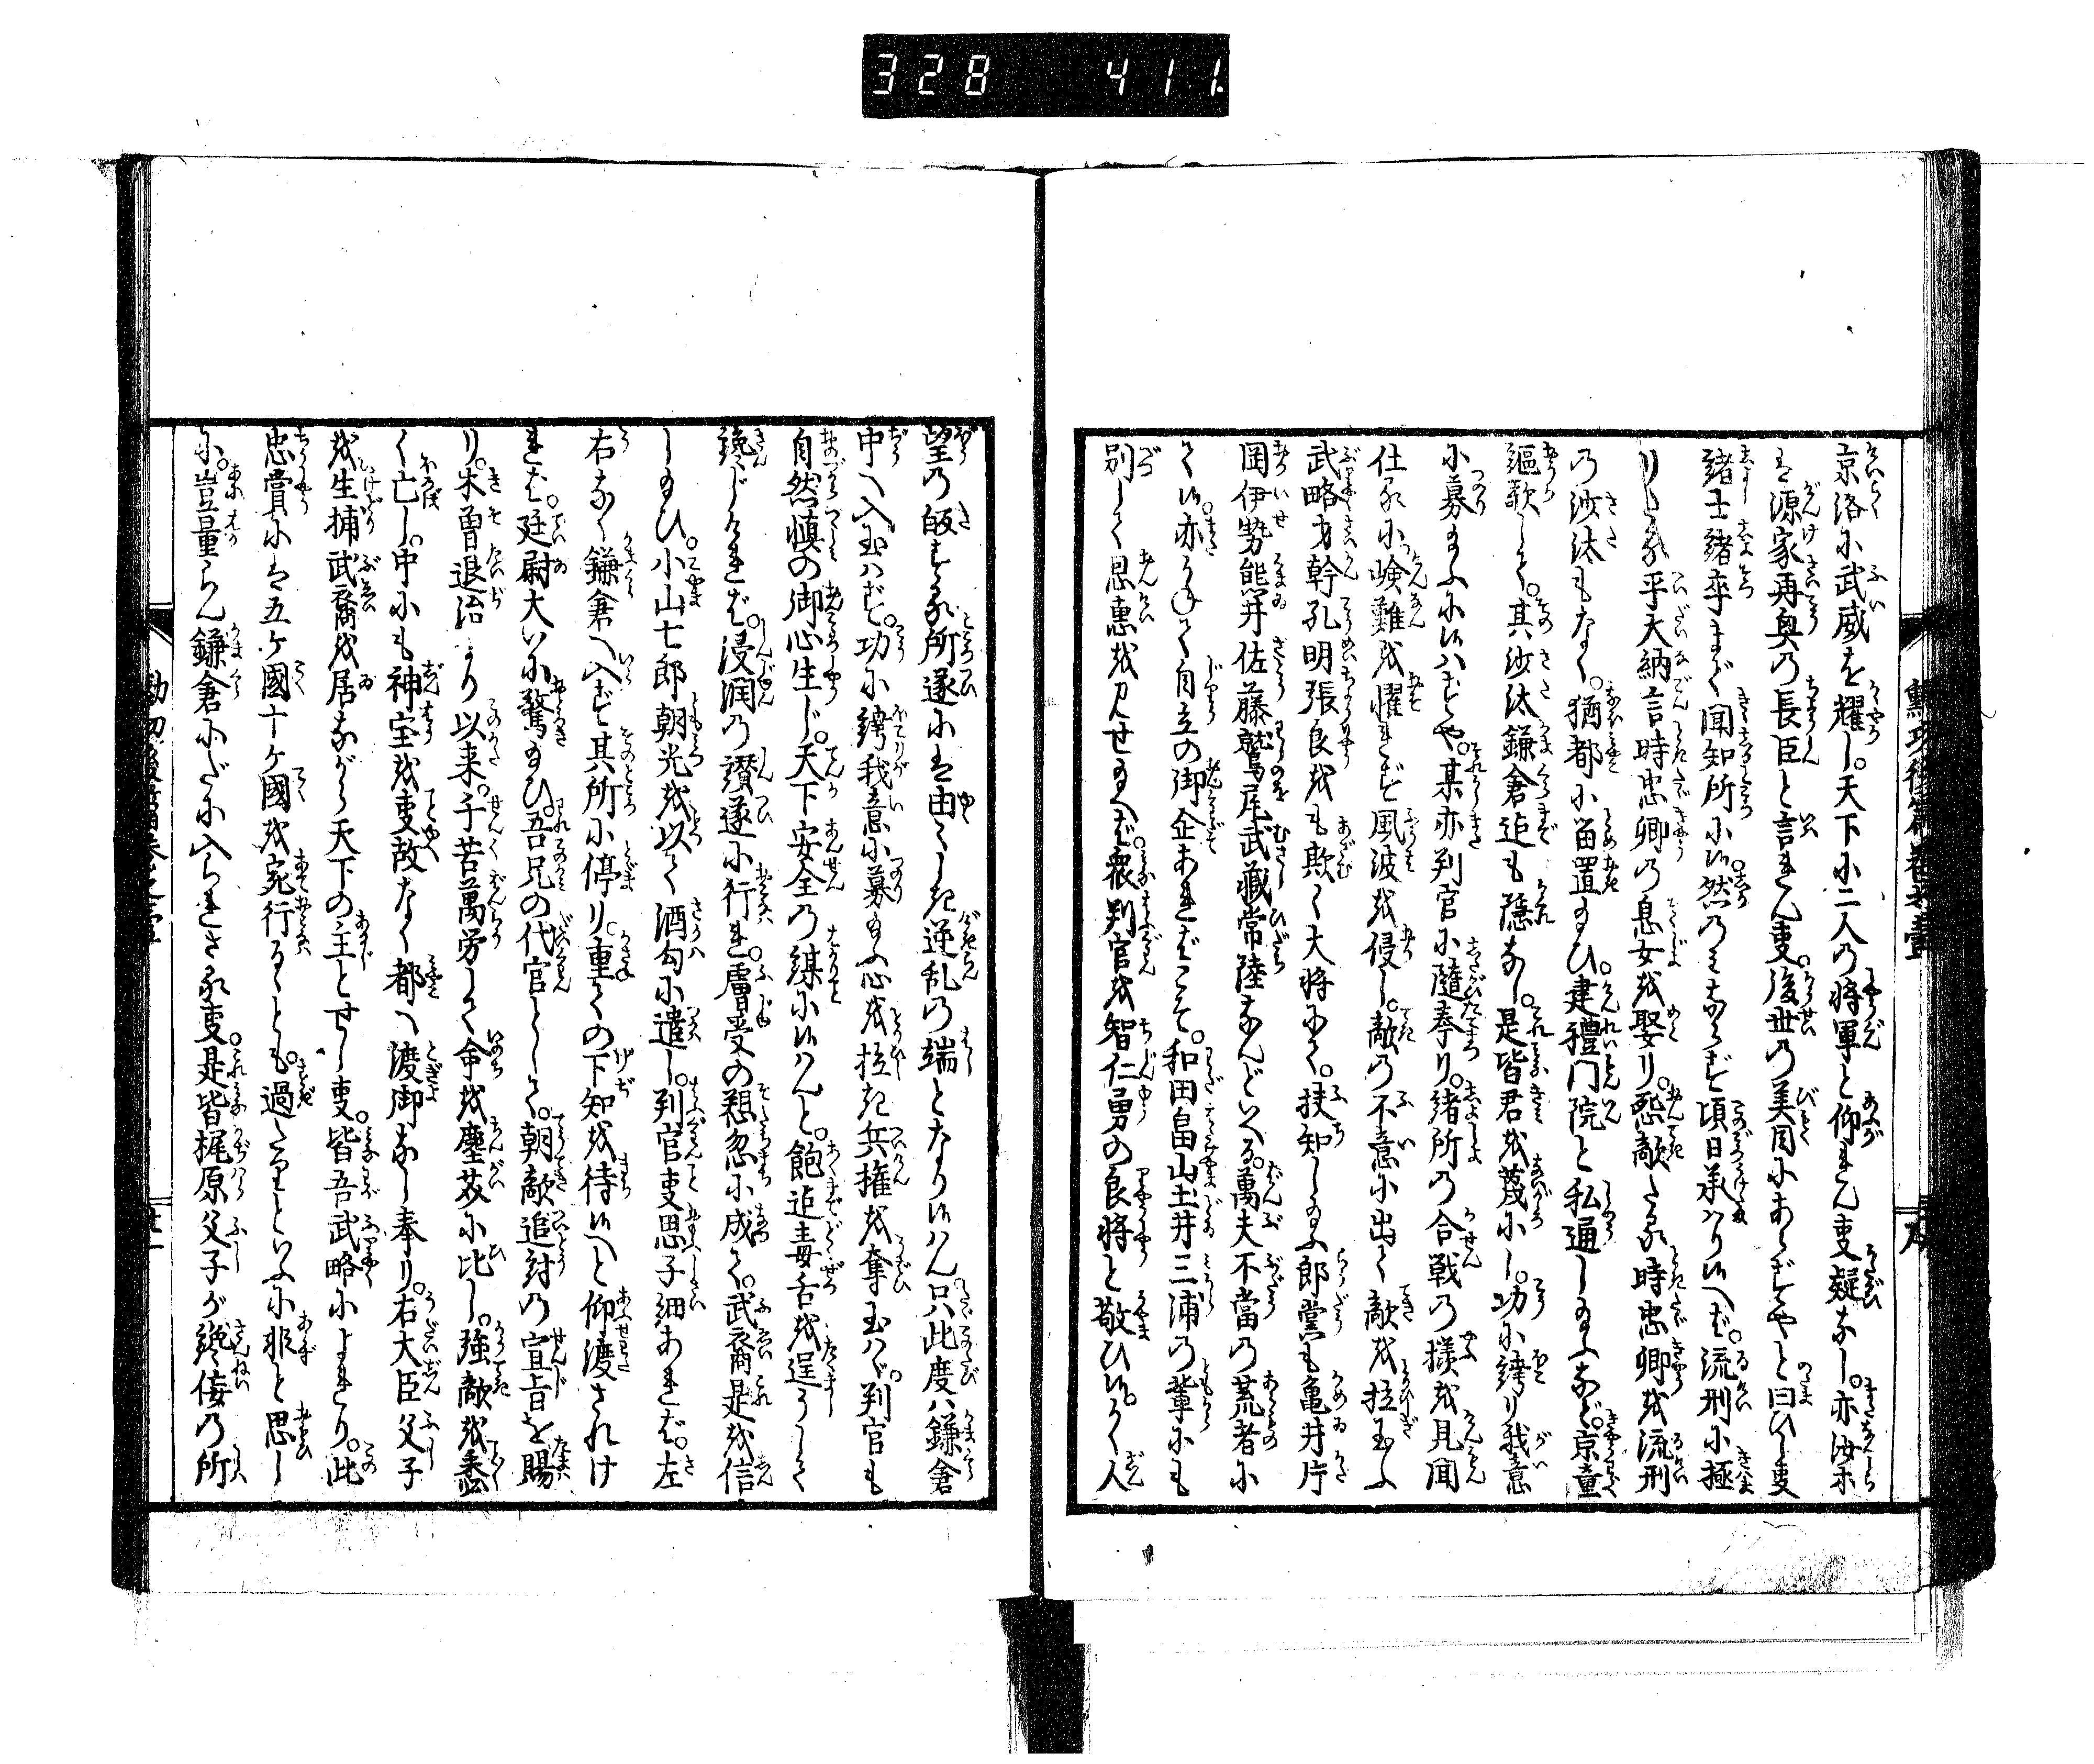 328 411.
京洛に武威を耀し。天下に二人の将軍と仰れん事疑なし。亦汝等
は源家再興の長臣と言れん事。後世の美目にあらずやと曰ひし事
諸士諸卒まで聞知所に候。然のみならず頃日承はり候へば。流刑に極
りたる平大納言時忠卿の息女を娶り。怨敵たる時忠卿を流刑
の沙汰もなく。猶都に留置給ひ。建禮門院と私通し給ふなど。京童
謳歌して。其沙汰鎌倉迄も隠なし。是皆君を蔑にし。功に誇り我意
に募給ふに候はずや。某亦判官に隨奉り。諸所の合戦の様を見聞
仕るに嶮難を懼れず風波を侵し。敵の不意に出て敵を拉玉ふ
武略才幹孔明張良をも欺く大将にて。扶知し給ふ郎党も亀井片
岡伊勢能井佐藤鷲尾武藏常陸なんどいへる。萬夫不當の荒者に
て候。亦かねて自立の御企あればこそ。和田畠山土井三浦の輩にも
別して恩惠を見せ給へば。衆判官を智仁勇の良将と敬ひ候。かく人
望の皈する所遂には由々しき逆乱の端となり候はん只此度ハ鎌倉
中へ入玉はず。功に誇我意に募給ふ心を拉ぎ兵権を奪玉ハゞ。判官も
自然慎の御心生じ。天下安全の謀に候はんと。飽迄毒舌を逞うして
讒じければ。浸潤の讃遂に行れ。膚受の愬忽に成て。武衛是を信
し給ひ。小山七郎朝光を以て酒匂に遣し。判官事思子細あれば。左
右なく鎌倉へ入ず其所に停り。重ての下知を待候へと仰渡されけ
れば。廷尉大いに驚給ひ。吾兄の代官として。朝敵追討の宣旨を賜
り。木曽退治より以来。千苦萬労して命を塵芥に比し。強敵を悉
く亡し。中にも神宝を事故なく都へ渡御なし奉り。右大臣父子
を生捕武衛を居ながら天下の主とせし事。皆吾武略によれり。此
忠賞には五ケ國十ケ國を宛行るゝとも。過たりといふに非と思し
に。豈量らん鎌倉にだに入られざる事。是皆梶原父子が讒侫の所